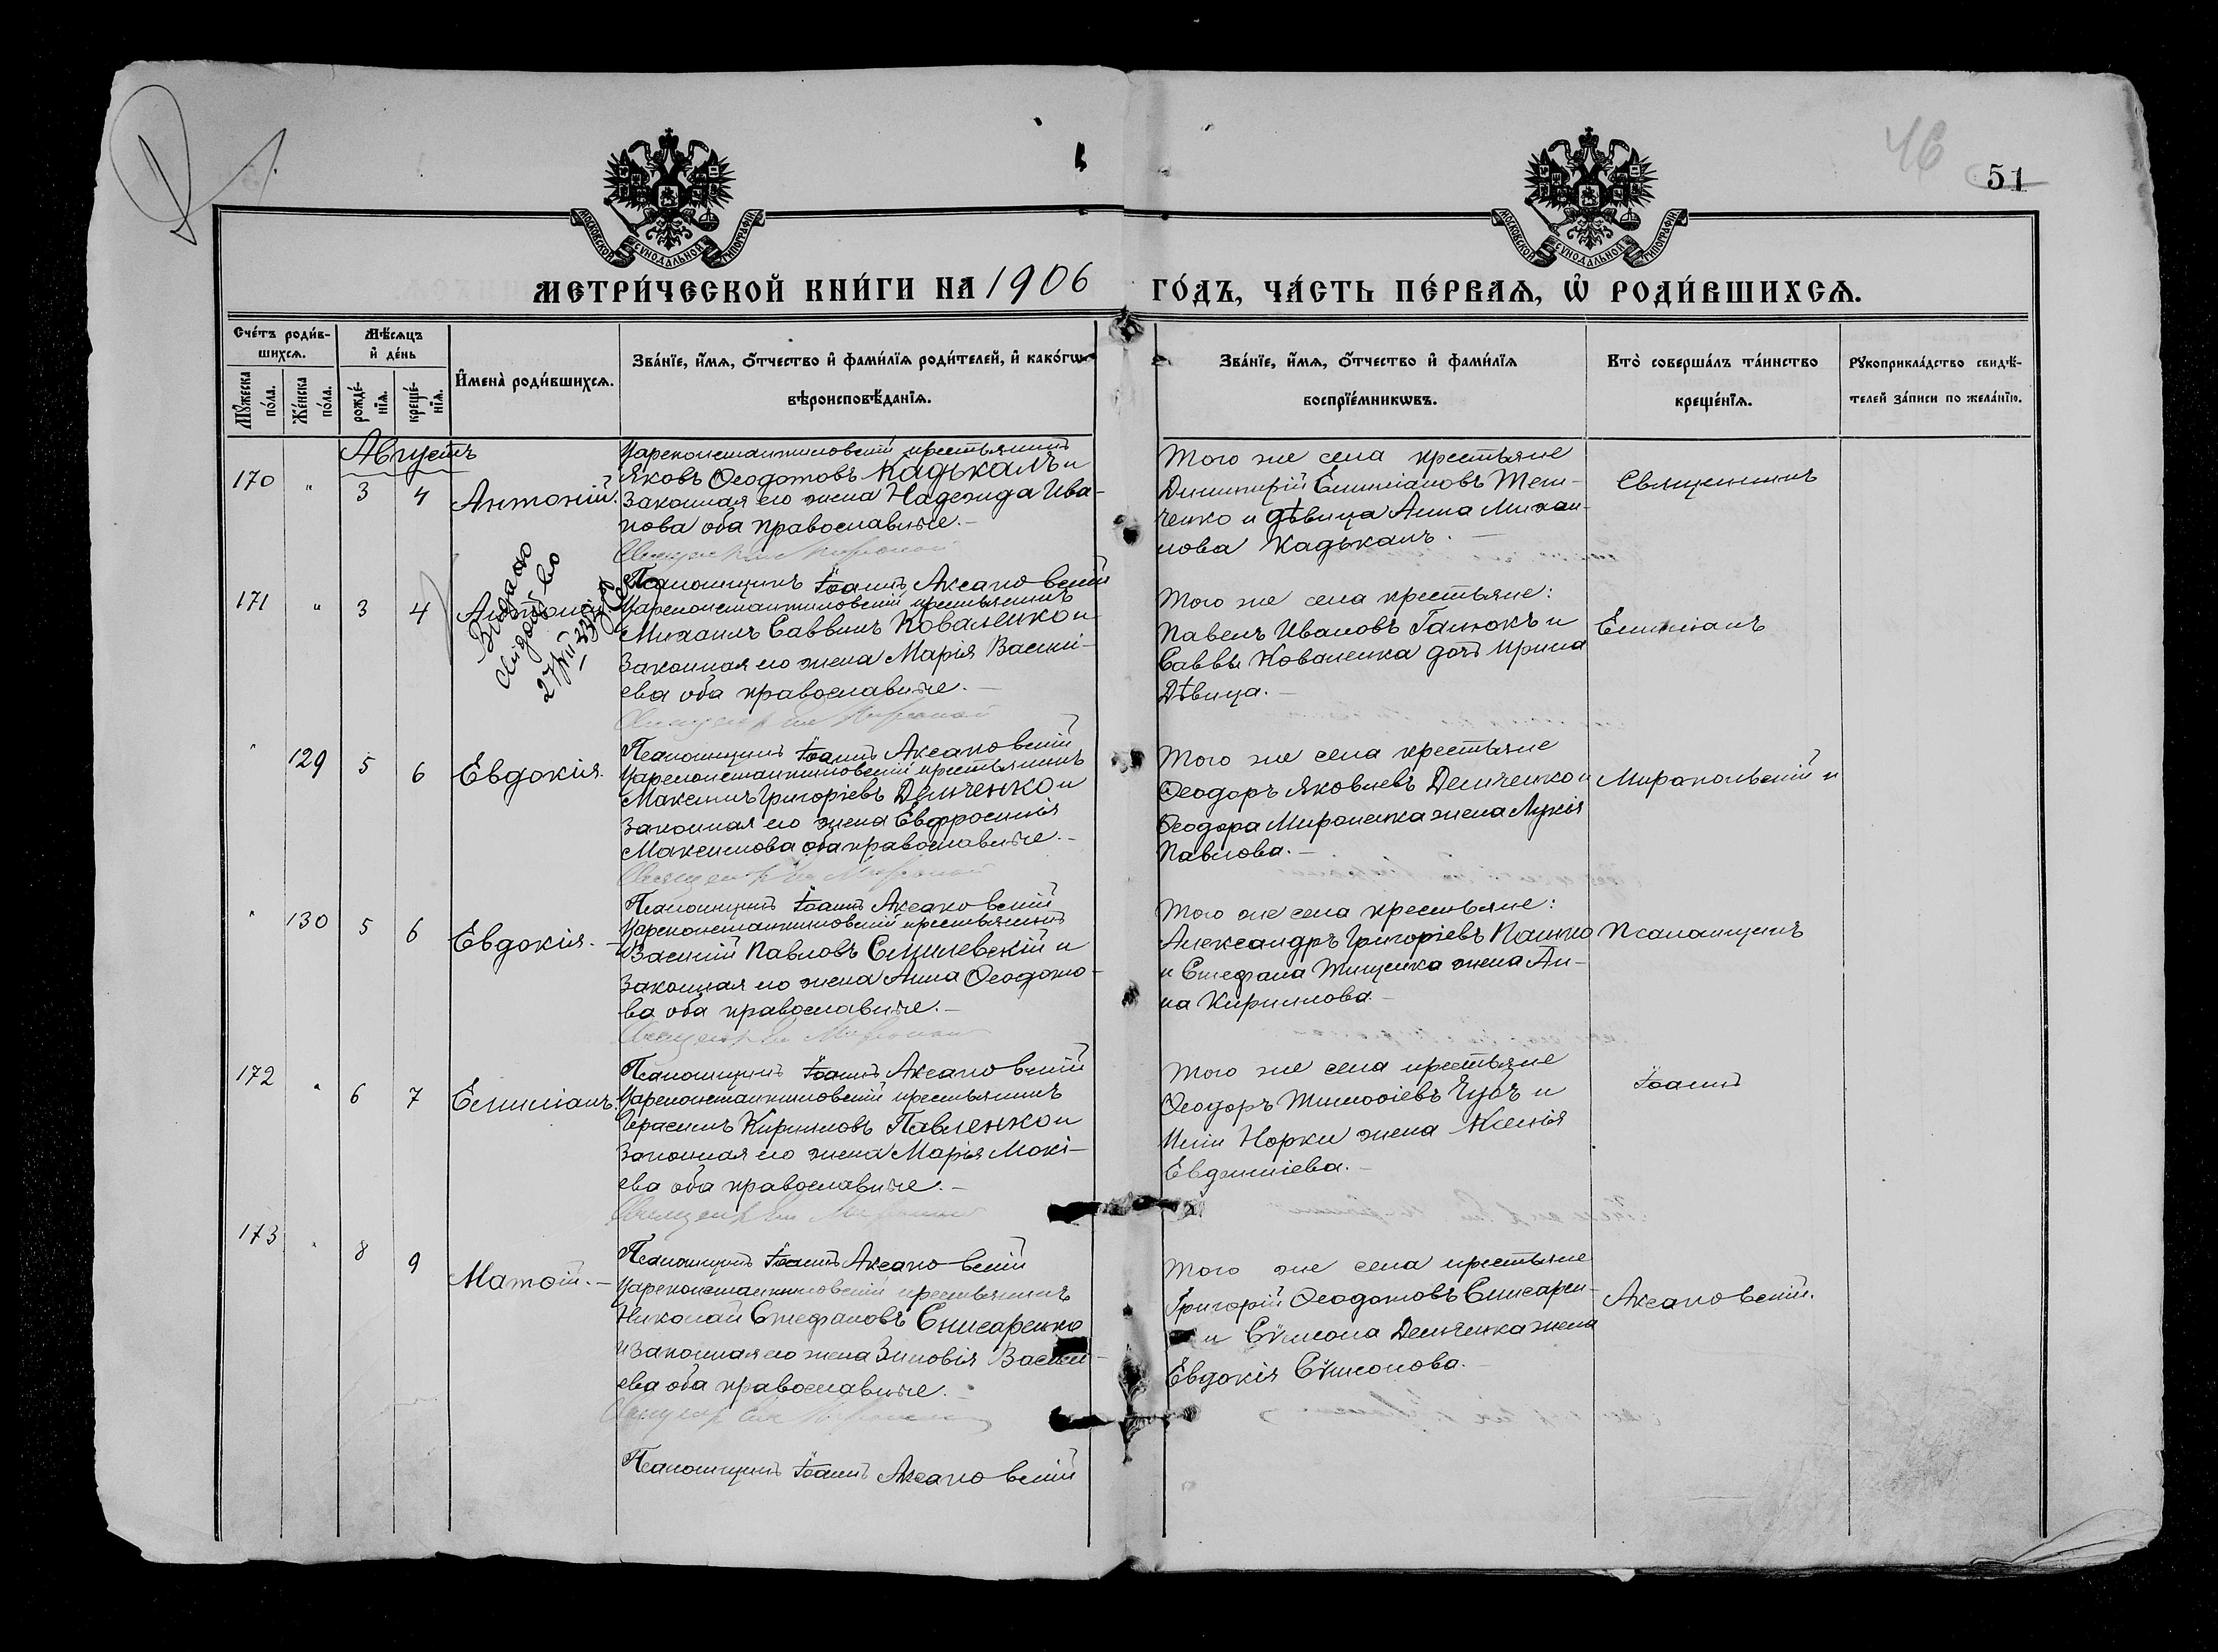 46
51
МОСКОВСКОЙ СУНОДАЛЬНОЙ ТИПОГРАФІИ
МОСКОВСКОЙ СУНОДАЛЬНОЙ ТИПОГРАФІИ
МЕТРИ́ЧЕСКОЙ КНИ́ГИ НА 1906 ГО́ДЪ, ЧА́СТЬ ПЕ́РВАѦ, Ѡ РОДИ́ВШИХСѦ.
Сче́тъ роди́в-
шихсѧ.
Мѣ́сяцъ
и де́нь
Мꙋ́жеска
по́ла.
Же́нска
по́ла.
рожде́-
нїѧ.
креще́-
нїѧ.
Имена̀ роди́вшихсѧ.
Зва́нїе, и́мѧ, о́тчество и фами́лїѧ роди́телей, и како́гѡ
вѣроисповѣ́данїѧ.
Зва́нїе, и́мѧ, о́тчество и фами́лїѧ
воспрїе́мникѡвъ.
Кто̀ соверша́лъ та́инство
креще́нїѧ.
Рꙋкоприкла́дство свидѣ́-
телей за́писи по жела́нїю.
Августъ
170 " 3 4 Антоній.
Цареконстантиновскій крестьянинъ
Яковъ Ѳеодотовъ Кадькалъ и
законная его жена Надежда Ива-
нова оба православные.-
Того же села крестьяне
Димитрій Емиліановъ Тем-
ченко и дѣвица Анна Михаи-
лова Кадькалъ.-
Священникъ
Псаломщикъ Іоаннъ Аксаковскій
171 " 3 4 Антоній.
Видано
свідоцтво
27/VII-33
Цареконстантиновскій крестьянинъ
Михаилъ Саввинъ Коваленко и
законная его жена Марія Васи-
ева оба православные.-
Того же села крестьяне:
Павелъ Ивановъ Галюкъ и
Саввы Коваленка дочь Ирина
Дѣвица.-
Емиліанъ
Псаломщикъ Іоаннъ Аксаковскій
" 129 5 6 Евдокія.
Цареконстантиновскій крестьянинъ
Максимъ Григоріевъ Демченко и
законная его жена Евфросинія
Максимова оба православные.-
Того же села крестьяне
Ѳеодоръ Яковлевъ Демченко и
Ѳеодора Мироненка жена Лукія
Павлова.-
Миропольскій и
Псаломщикъ Іоаннъ Аксаковскій
" 130 5 6 Евдокія.-
Цареконстантиновскій крестьянинъ
Василій Павловъ Смилевскій и
законная его жена Анна Ѳеодото-
ва оба православные.-
Того же села крестьяне:
Александръ Григоріевъ Пашко
и Стефана Тищенка жена Ан-
на Кириллова.-
Псаломщикъ
Псаломщикъ Іоаннъ Аксаковскій
172 " 6 7 Емиліанъ.
Цареконстантиновскій крестьянинъ
Герасимъ Кирилловъ Павленко и
законная его жена Марія Мокі-
ева оба православные.-
Того же села крестьяне
Ѳеодоръ Тимоѳіевъ Губъ и
Иліи Норки жена Ксенія
Евдокіева.-
Іоаннъ
Псаломщикъ Іоаннъ Аксаковскій
173 " 8 9 Матѳій.-
Цареконстантиновскій крестьянинъ
Николай Стефановъ Снисаренко
и законная его жена Зиновія Васил-
ева оба православные.-
Того же села крестьяне
Григорій Ѳеодотовъ Снисарен-
и Сѵмеона Демченка жена
Евдокія Сѵмеонова.-
Аксаковскій.
Псаломщикъ Іоаннъ Аксаковскій